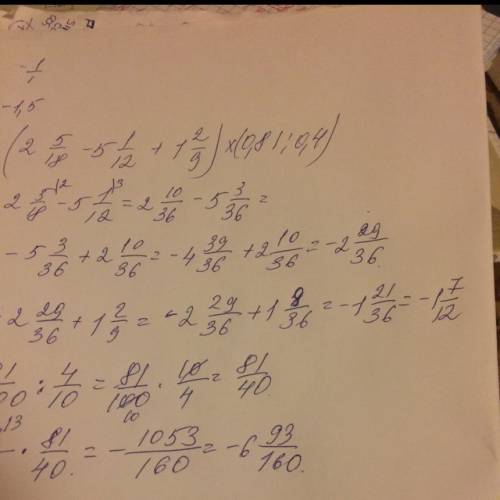 -1/1
-1,5
(2 5/18 - 5 1/12 + 1 2/9) × (0,81 : 0,4)
2 5/18 \2 - 5 1/12 \3 = 2 10/36 - 5 3/36 =
- 5 3/36 + 2 10/36 = -4 39/36 + 2 10/36 = -2 29/36.
2 29/36 + 1 2/9 = -2 29/36 + 1 8/36 = -1 21/36 = -1 7/12
81/100 : 4/10 = 81/100 10 · 10/4 = 81/40.
13 · 81/40. = - 1053/160 = -6 93/160.